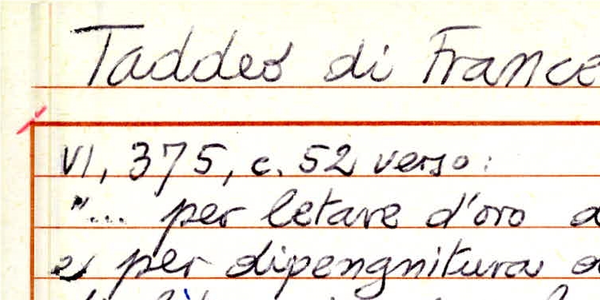 Taddeo di France
VI, 375, c. 52 verso:
"... per letare d'oro
e per dipengnitura